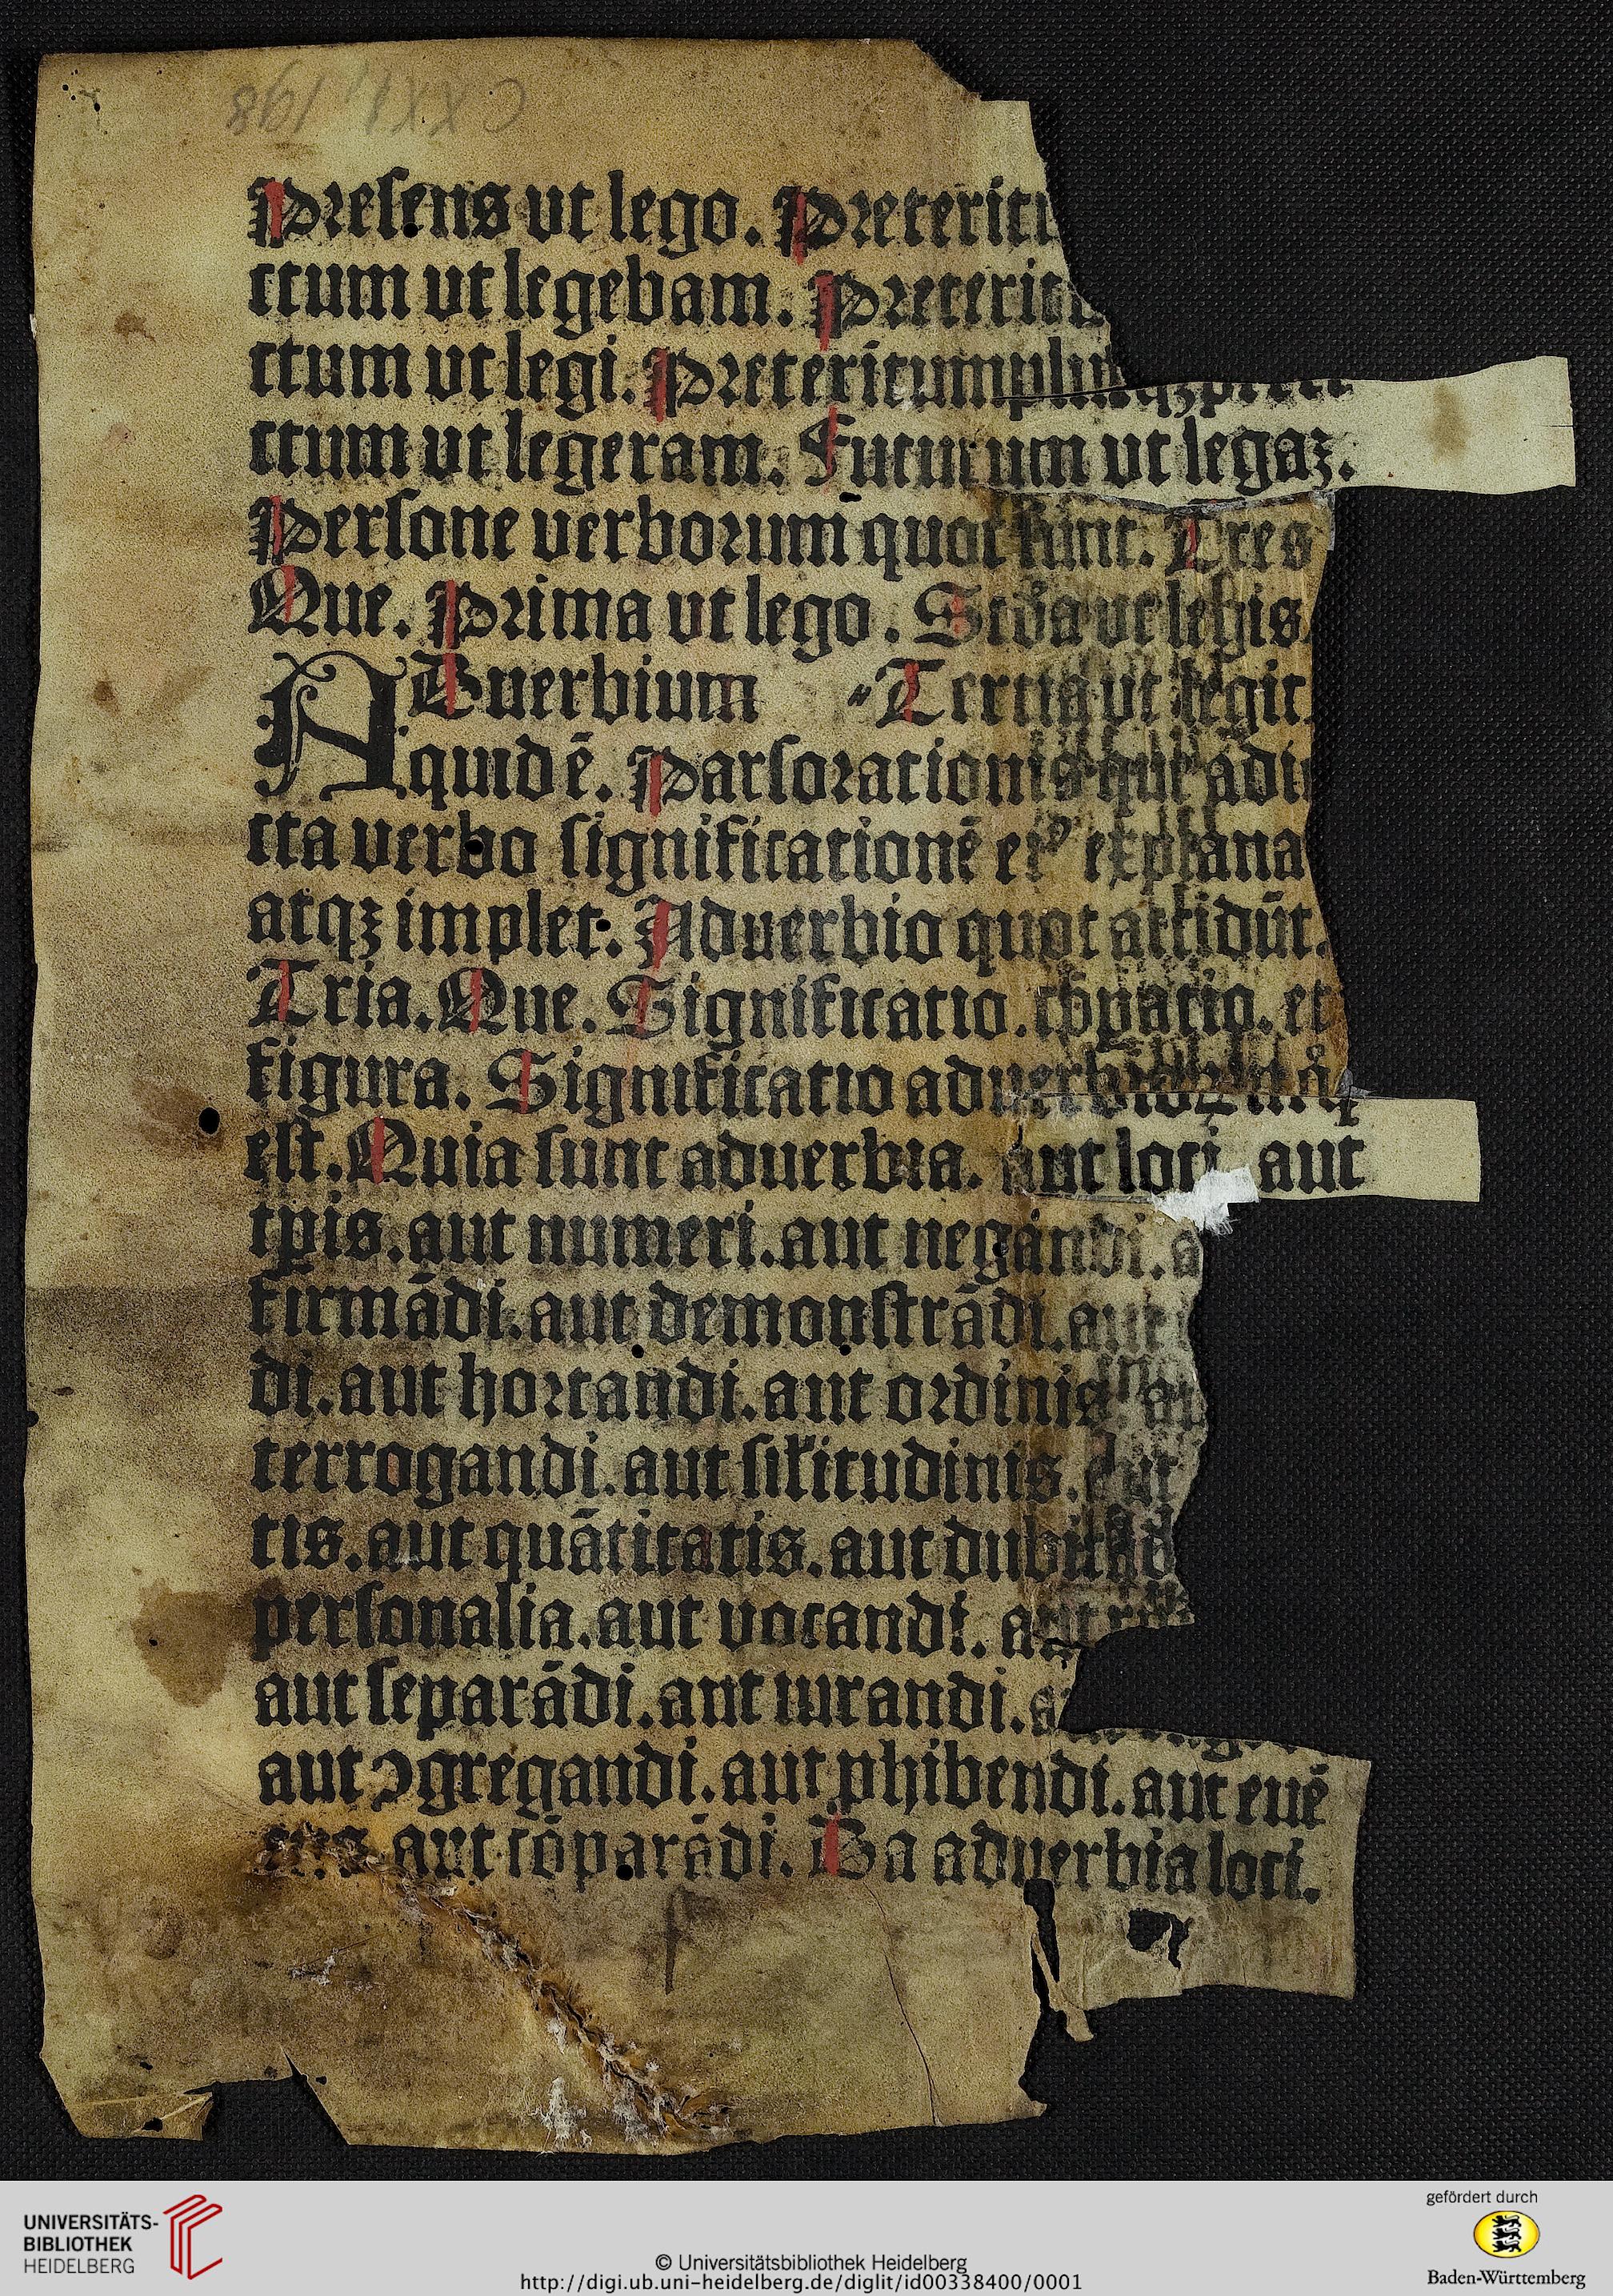 CXXII, 198
Presens ut lego. Preteritu
ctum ut legebam. Preterit
ctum ut legi. Preteritumplusqȝ
ctum ut legeram. Futurum ut legaȝ.
Persone verborum quot sunt. Tres
Que. Prima ut lego. Scďa ut legis
ADuerbium Tertia ut legit.
quid ē. Pars orationis que adi
cta verbo significationē eiꝰ explana
atqȝ implet. Aduerbio quot accidūt.
Tria. Que. Significatio. et
figura. Significatio aduerbioꝝ in q̄
est. Quia sunt aduerbia. aut loci aut
tp̄is. aut numeri. aut negandi. a
firmādi. aut demonstrādi. aut
di. aut hortandi. aut ordinis. au
terrogandi. aut silitudinis. aut
tis. aut quātitatis. aut dubitād
personalia. aut vocandi. aut
aut separādi. aut iurandi. a
aut ꝯgregandi. aut ꝓhibendi. aut euē
aut cōparādi. Da aduerbia loci.
UNIVERSITÄTS-
BIBLIOTHEK
HEIDELBERG
© Universitätsbibliothek Heidelberg
http://digi.ub.uni-heidelberg.de/diglit/id00338400/0001
gefördert durch
Baden-Württemberg